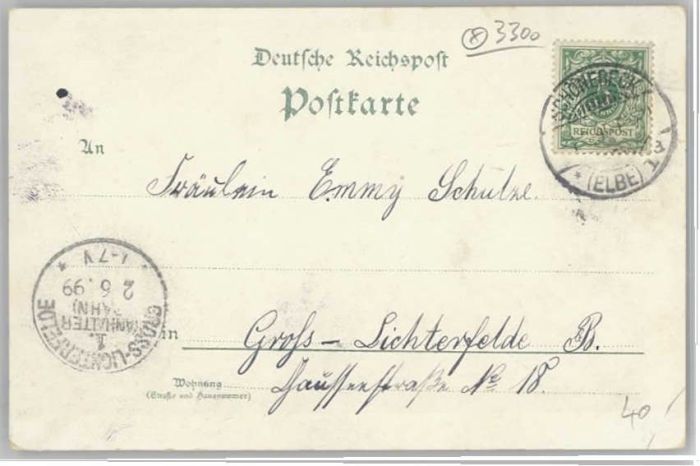 3300
Deutsche Reichspost
Postkarte
SCHÖNEBECK
REICHSPOST
* (ELBE) 1
An
Fräulein Emmy Schulze.
GROSS-LICHTERFELDE
1.
(ANHALTER
BAHN)
2 6. 99
* 6-7V *
in Groß-Lichterfelde B.
Wohnung
(Straße und Hausnummer)
straße No 18.
40